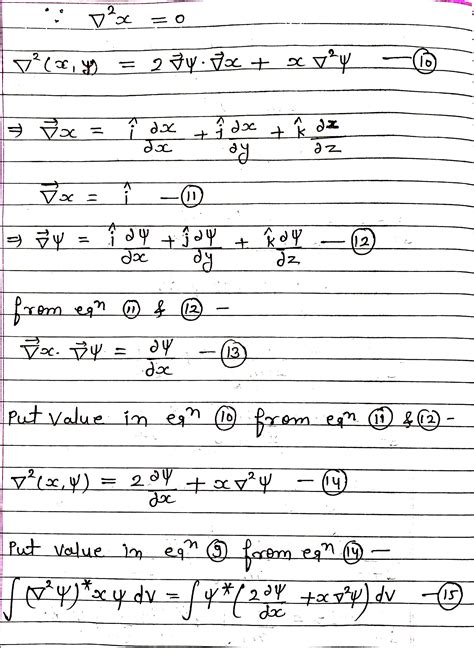 ∵ ∇²x = 0
∇²(x,y) = 2 ∇⃗ψ·∇⃗x + x ∇²ψ — ⑩
⇒ ∇⃗x = î ∂x/∂x + ĵ ∂x/∂y + k̂ ∂z/∂z
∇⃗x = î — ⑪
⇒ ∇⃗ψ = î ∂ψ/∂x + ĵ ∂ψ/∂y + k̂ ∂ψ/∂z — ⑫
from eqⁿ ⑪ & ⑫ –
∇⃗x · ∇⃗ψ = ∂ψ/∂x — ⑬
Put value in eqⁿ ⑩ from eqⁿ ⑪ & ⑫ –
∇²(x,ψ) = 2 ∂ψ/∂x + x ∇²ψ — ⑭
Put value in eqⁿ ⑨ from eqⁿ ⑭ —
∫(∇²ψ)* x ψ dv = ∫ψ*(2 ∂ψ/∂x + x ∇²ψ) dv — ⑮